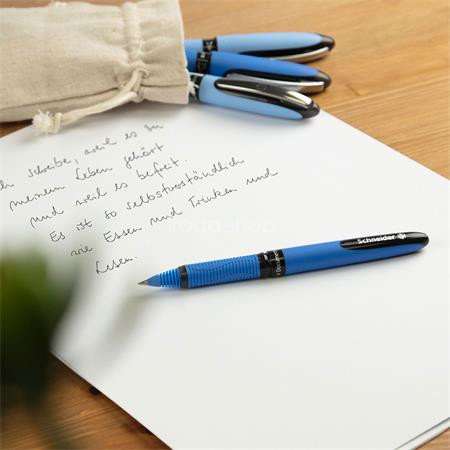 ch schreibe, weil es zu
meinem Leben gehört
und weil es befreit.
Es ist so selbstverständlich
wie Essen und Trinken und
Lesen.
irodashop
Schneider
Document